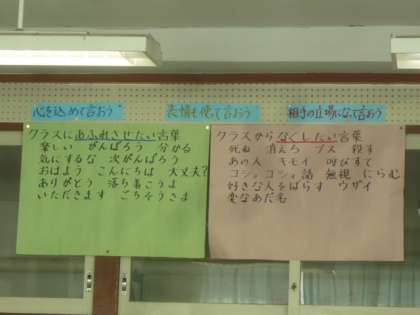 心を込めて言おう
表情も使って言おう
相手の立場になって言おう
クラスにあふれさせたい言葉
楽しい がんばろう 分かる
気にするな 次がんばろう
おはよう こんにちは 大丈夫?
ありがとう 落ち着こうよ
いただきます ごちそうさま
クラスからなくしたい言葉
死ね 消えろ ブス 殺す
あの人 キモイ 呼びすて
コショコショ話 無視 にらむ
好きな人をばらす ウザイ
変なあだ名